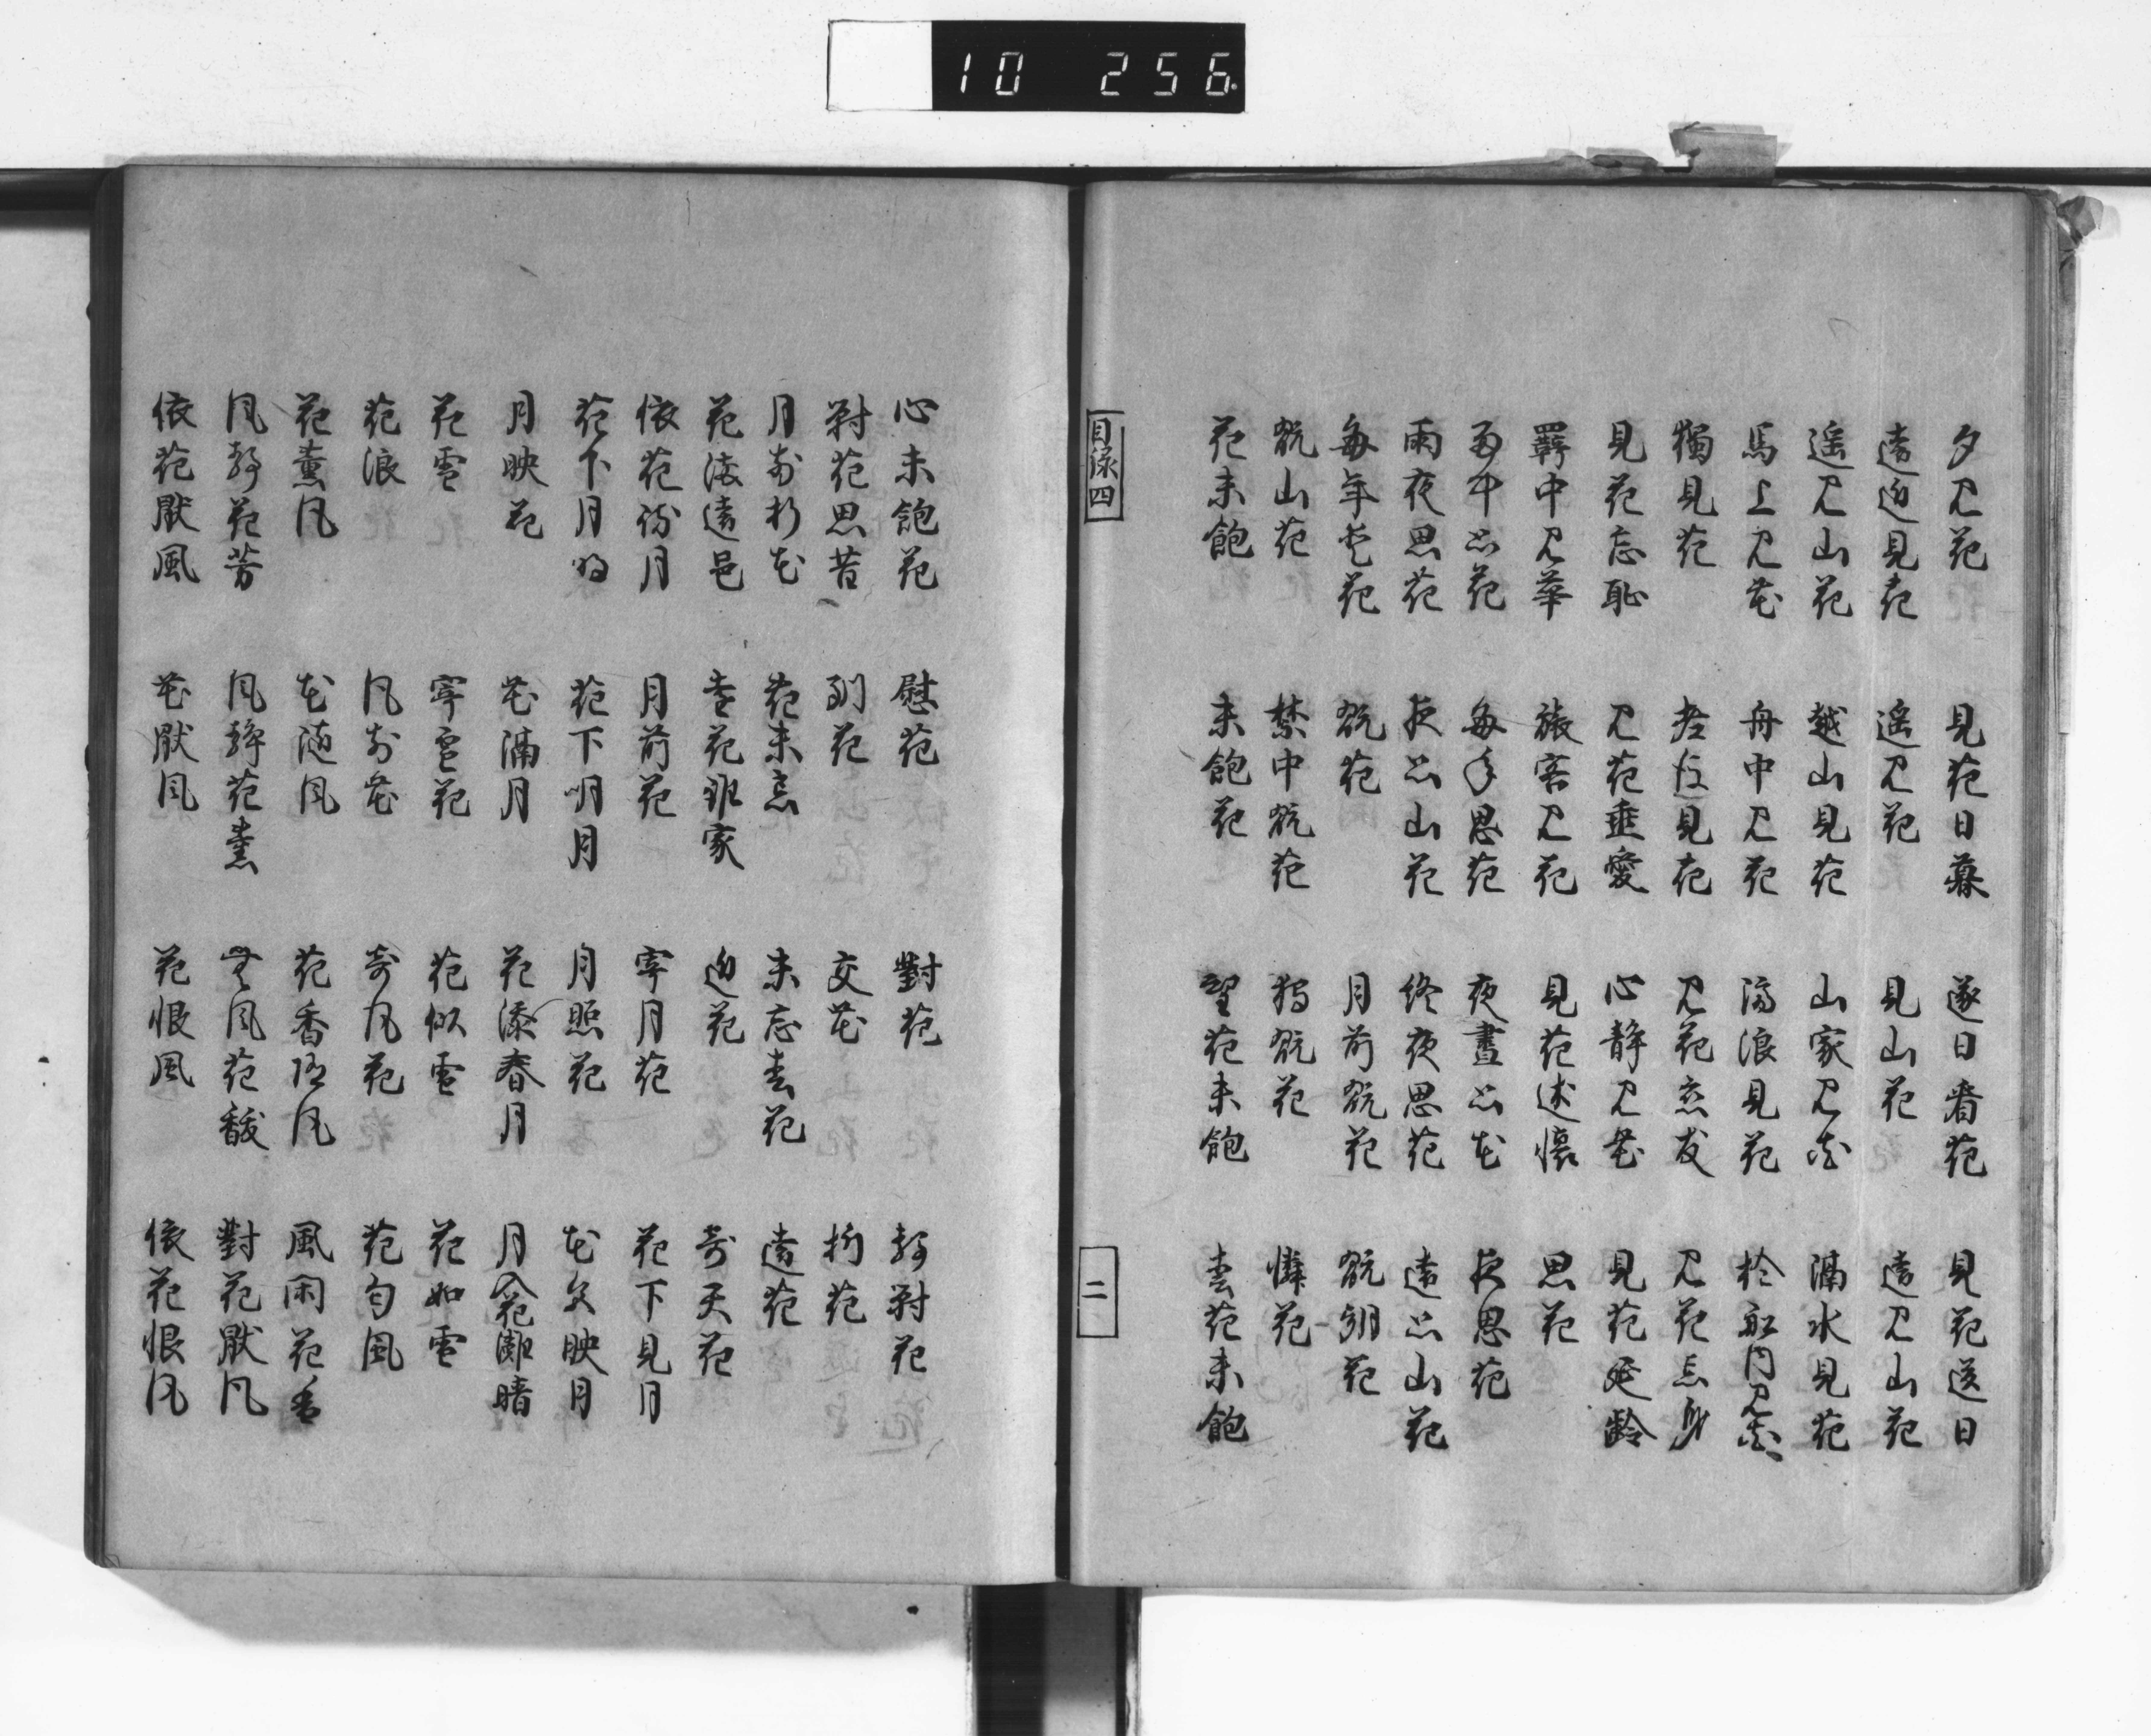 10 256
夕見花 見花日暮 逐日看花 見花送日
遠近見花 遥見花 見山花 遠見山花
遥見山花 越山見花 山家見花 隔水見花
馬上見花 舟中見花 隔浪見花 於船門見花
獨見花 老後見花 見花恋友 見花忘身
見花忘恥 見花垂愛 心静見花 見花延齢
羇中見華 旅客見花 見花述懐 思花
雨中思花 毎年思花 夜晝思花 夜思花
雨夜思花 夜思山花 終夜思花 遠思山花
毎年愛花 翫花 月前翫花 翫朝花
翫山花 禁中翫花 独翫花 憐花
花未飽 未飽花 望花未飽 尋花未飽
目録四 二
心未飽花 慰花 對花 静對花
對花思昔 到花 交花 折花
月前折花 花未忘 未忘尋花 遠花
花満遠邑 尋花非家 近花 寄天花
依花待月 月前花 寄月花 花下見月
花下月 花下明月 月照花 花色映月
月映花 花隔月 花添春月 月入花灘暗
花雪 寄雪花 花似雪 花如雪
花浪 風前花 寄風花 花匂風
花薫風 花随風 花香随風 風閑花香
風静花芳 風静花薫 無風花馥 對花厭風
依花厭風 花厭風 花恨風 依花恨風